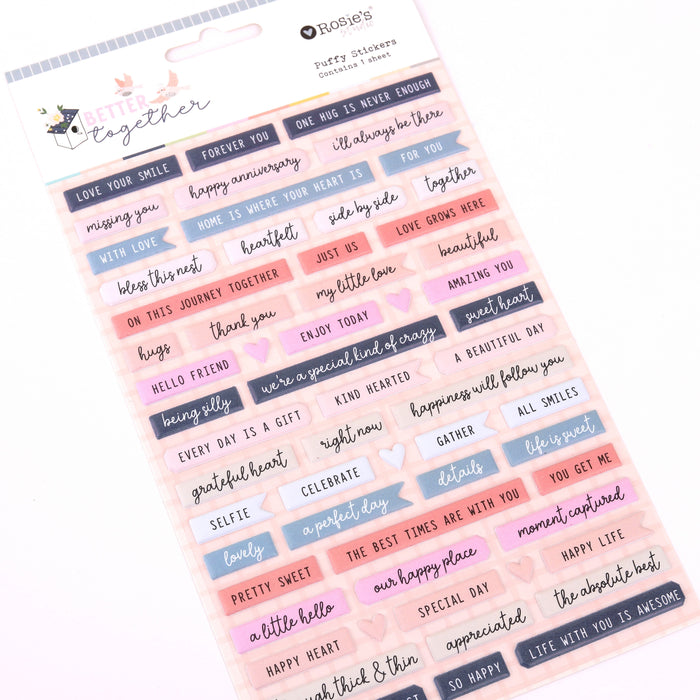 BETTER
together
Rosie's
Puffy Stickers
Contains 1 sheet
LOVE YOUR SMILE
FOREVER YOU
ONE HUG IS NEVER ENOUGH
missing you
happy anniversary
i'll always be there
WITH LOVE
HOME IS WHERE YOUR HEART IS
FOR YOU
bless this nest
heartfelt
side by side
together
ON THIS JOURNEY TOGETHER
JUST US
LOVE GROWS HERE
hugs
thank you
my little love
beautiful
HELLO FRIEND
ENJOY TODAY
AMAZING YOU
being silly
we're a special kind of crazy
sweet heart
EVERY DAY IS A GIFT
KIND HEARTED
A BEAUTIFUL DAY
grateful heart
right now
happiness will follow you
SELFIE
CELEBRATE
GATHER
ALL SMILES
lovely
a perfect day
details
life is sweet
PRETTY SWEET
THE BEST TIMES ARE WITH YOU
YOU GET ME
a little hello
our happy place
moment captured
HAPPY HEART
SPECIAL DAY
HAPPY LIFE
thick & thin
appreciated
the absolute best
SO HAPPY
LIFE WITH YOU IS AWESOME